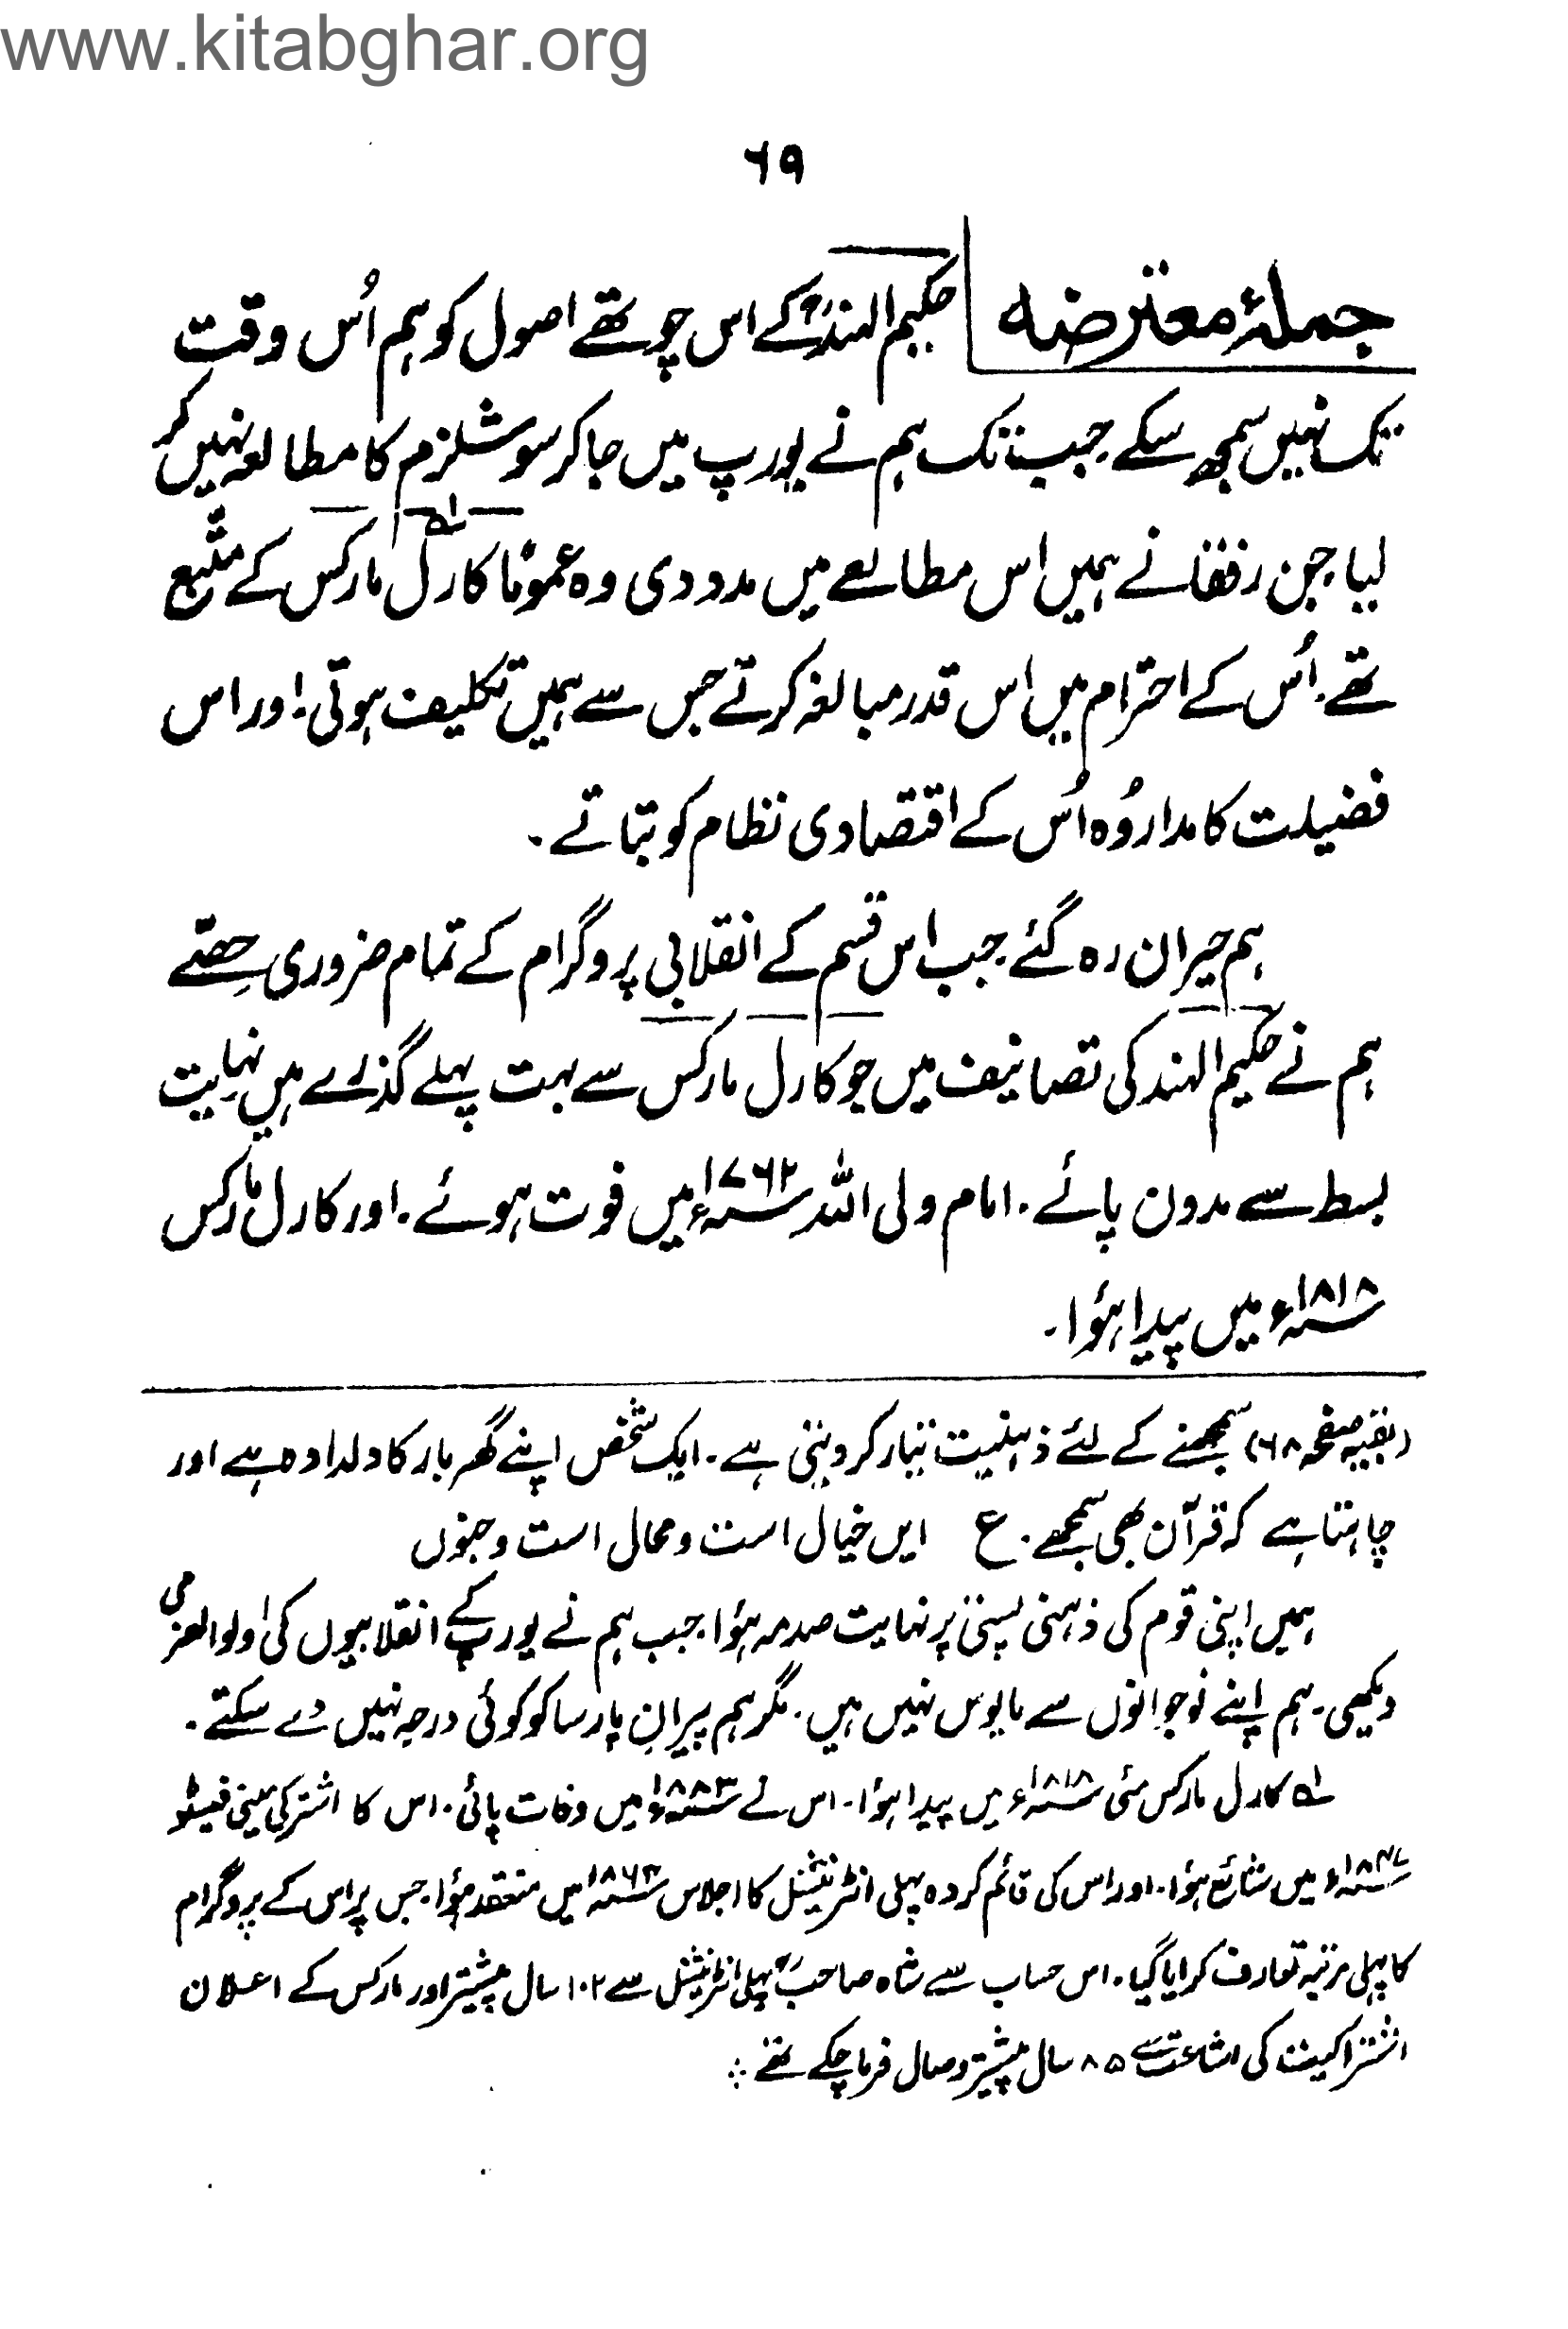 www.kitabghar.org
۶۹
جملۂ معترضہ حکیم الہندؒ کے اس چوتھے اصول کو ہم اُس وقت
تک نہیں سمجھ سکے جب تک ہم نے یورپ میں جا کر سوشلزم کا مطالعہ نہیں کر
لیا۔ جن رفقا نے ہمیں اس مطالعے میں مدد دی وہ عمومًا کارل ؎۱ مارکس کے متّبع
تھے۔ اُس کے احترام میں اس قدر مبالغہ کرتے جس سے ہمیں تکلیف ہوتی۔ اور اس
فضیلت کا مدار وُہ اُس کے اقتصادی نظام کو بتاتے۔
ہم حیران رہ گئے جب اس قسم کے انقلابی پروگرام کے تمام ضروری حِصّے
ہم نے حکیم الہند کی تصانیف میں جو کارل مارکس سے بہت پہلے گذرے ہیں نہایت
بسط سے مدون پائے۔ امام ولی اللہ ۱۷۶۲ء میں فوت ہوئے۔ اور کارل مارکس
۱۸۱۸ء میں پیدا ہؤا۔
(بقیہ صفحہ ۶۸) سمجھنے کے لئے ذہنیت تیار کر دیتی ہے۔ ایک شخص اپنے گھر بار کا دلدادہ ہے اور
چاہتا ہے کہ قرآن بھی سمجھے۔ ع ایں خیال است و محال است و جنوں
ہمیں اپنی قوم کی ذہنی پستی پر نہایت صدمہ ہؤا۔ جب ہم نے یورپ کے انقلابیوں کی اولوالعزمی
دیکھی۔ ہم اپنے نوجوانوں سے مایوس نہیں ہیں۔ مگر ہم پیرانِ پارسا کو کوئی درجہ نہیں دے سکتے۔
؎۱ کارل مارکس مئی ۱۸۱۸ء میں پیدا ہؤا۔ اس نے ۱۸۸۳ء میں وفات پائی۔ اس کا اشتراکی مینی فیسٹو
۱۸۴۷ء میں شائع ہؤا۔ اور اس کی قائم کردہ پہلی انٹرنیشنل کا اجلاس ۱۸۶۴ء میں منعقد ہؤا۔ جس پر اس کے پروگرام
کا پہلی مرتبہ تعارف کرایا گیا۔ اس حساب سے شاہ صاحبؒ پہلی انٹرنیشنل سے ۱۰۲ سال پیشتر اور مارکس کے اعلان
اشتراکیت کی اشاعت سے ۸۵ سال پیشتر وصال فرما چکے تھے ؞